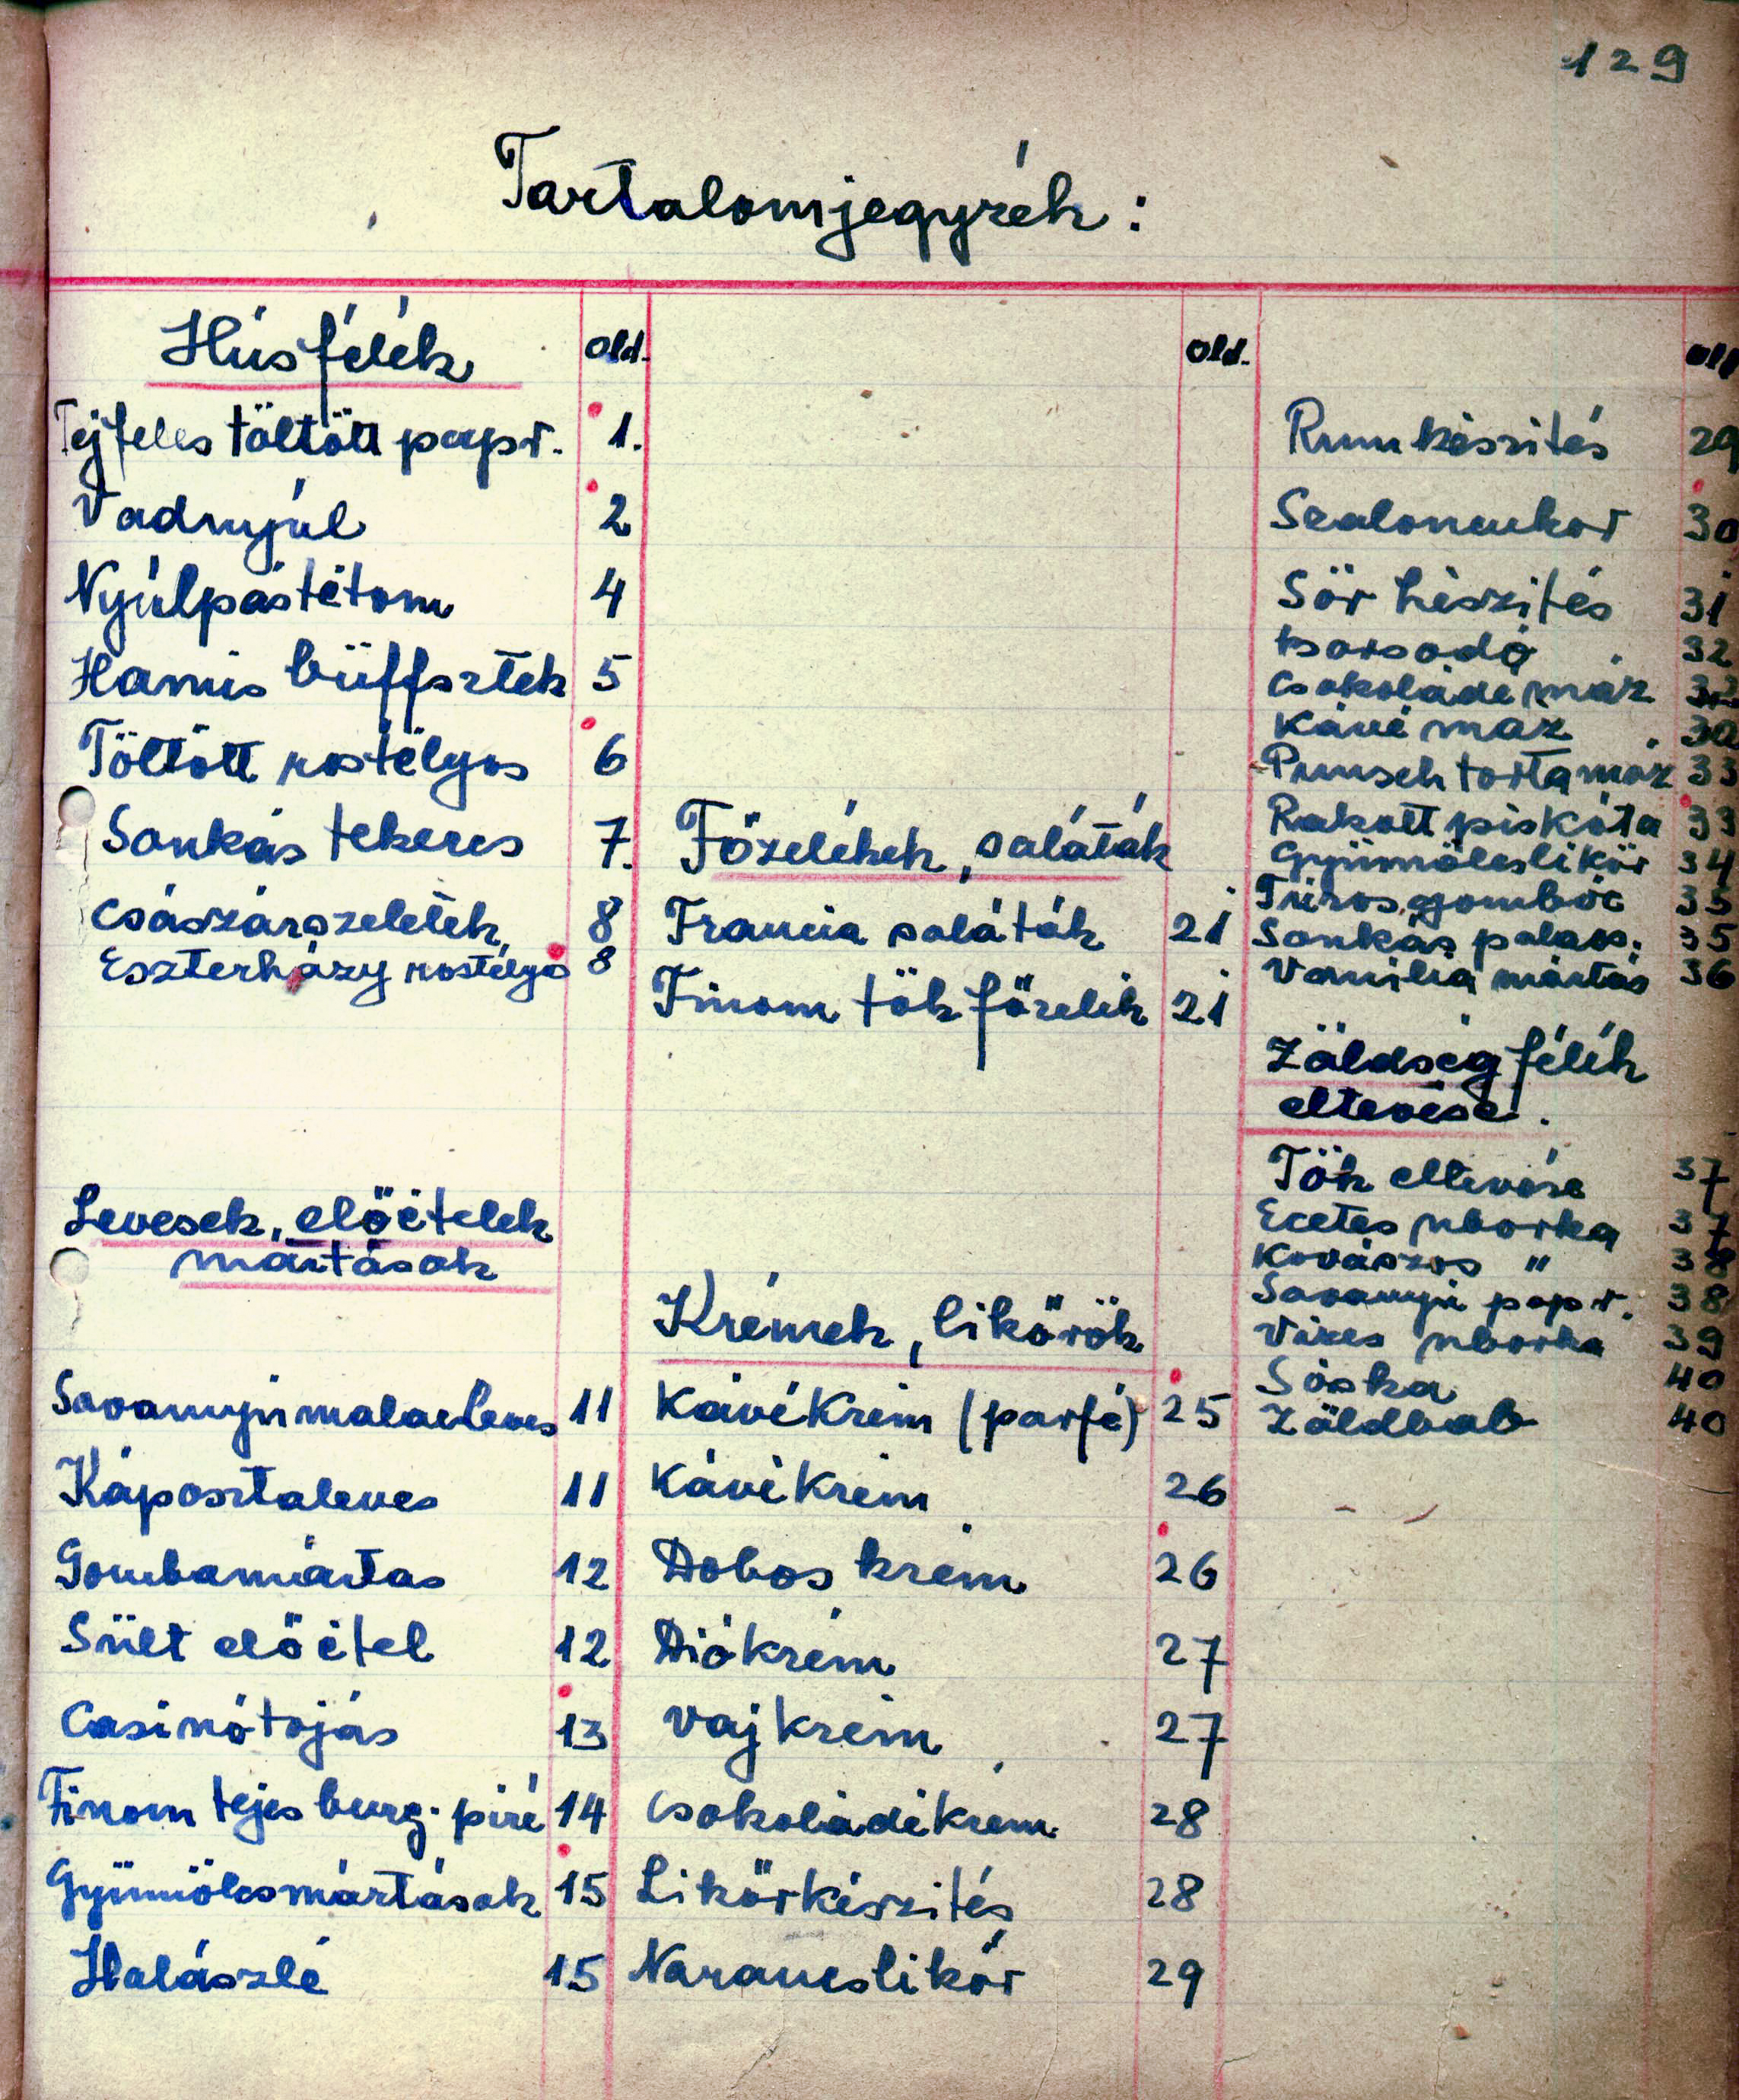 129
Tartalomjegyzék:
Húsfélék old.
Tejfeles töltött papr. 1.
Vadnyúl 2
Nyúlpástétom 4
Hamis büffsztek 5
Töltött rostélyos 6
Sonkás tekercs 7.
Császárszeletek 8
Eszterházy rostélyos 8
Levesek, előételek
mártások
Savanyú malacleves 11
Káposztaleves 11
Gombamártás 12
Sült előétel 12
Casinótojás 13
Finom tejes burg. püré 14
Gyümölcsmártások 15
Halászlé 15
old.
Főzelékek, saláták
Francia saláták 21
Finom tök főzelék 21
Krémek, likőrök
Kávékrém (parfé) 25
Kávékrém 26
Dobos krém 26
Diókrém 27
Vajkrém 27
Csokoládékrém 28
Likőrkészítés 28
Narancslikőr 29
old
Rumkészités 29
Szaloncukor 30
Sör készítés 31
Borsodó 32
Csokoládé máz
Kávé máz
Punsch torta máz 33
Rakott piskóta 33
Gyümölcslikör 34
Túrós gombóc 35
Sonkás palacs. 35
Vanília mártás 36
Zöldség félék
eltevése.
Tök eltevése 37
Ecetes uborka 37
Kovászos " 38
Savanyú papr. 38
Vizes uborka 39
Sóska 40
Zöldbab 40